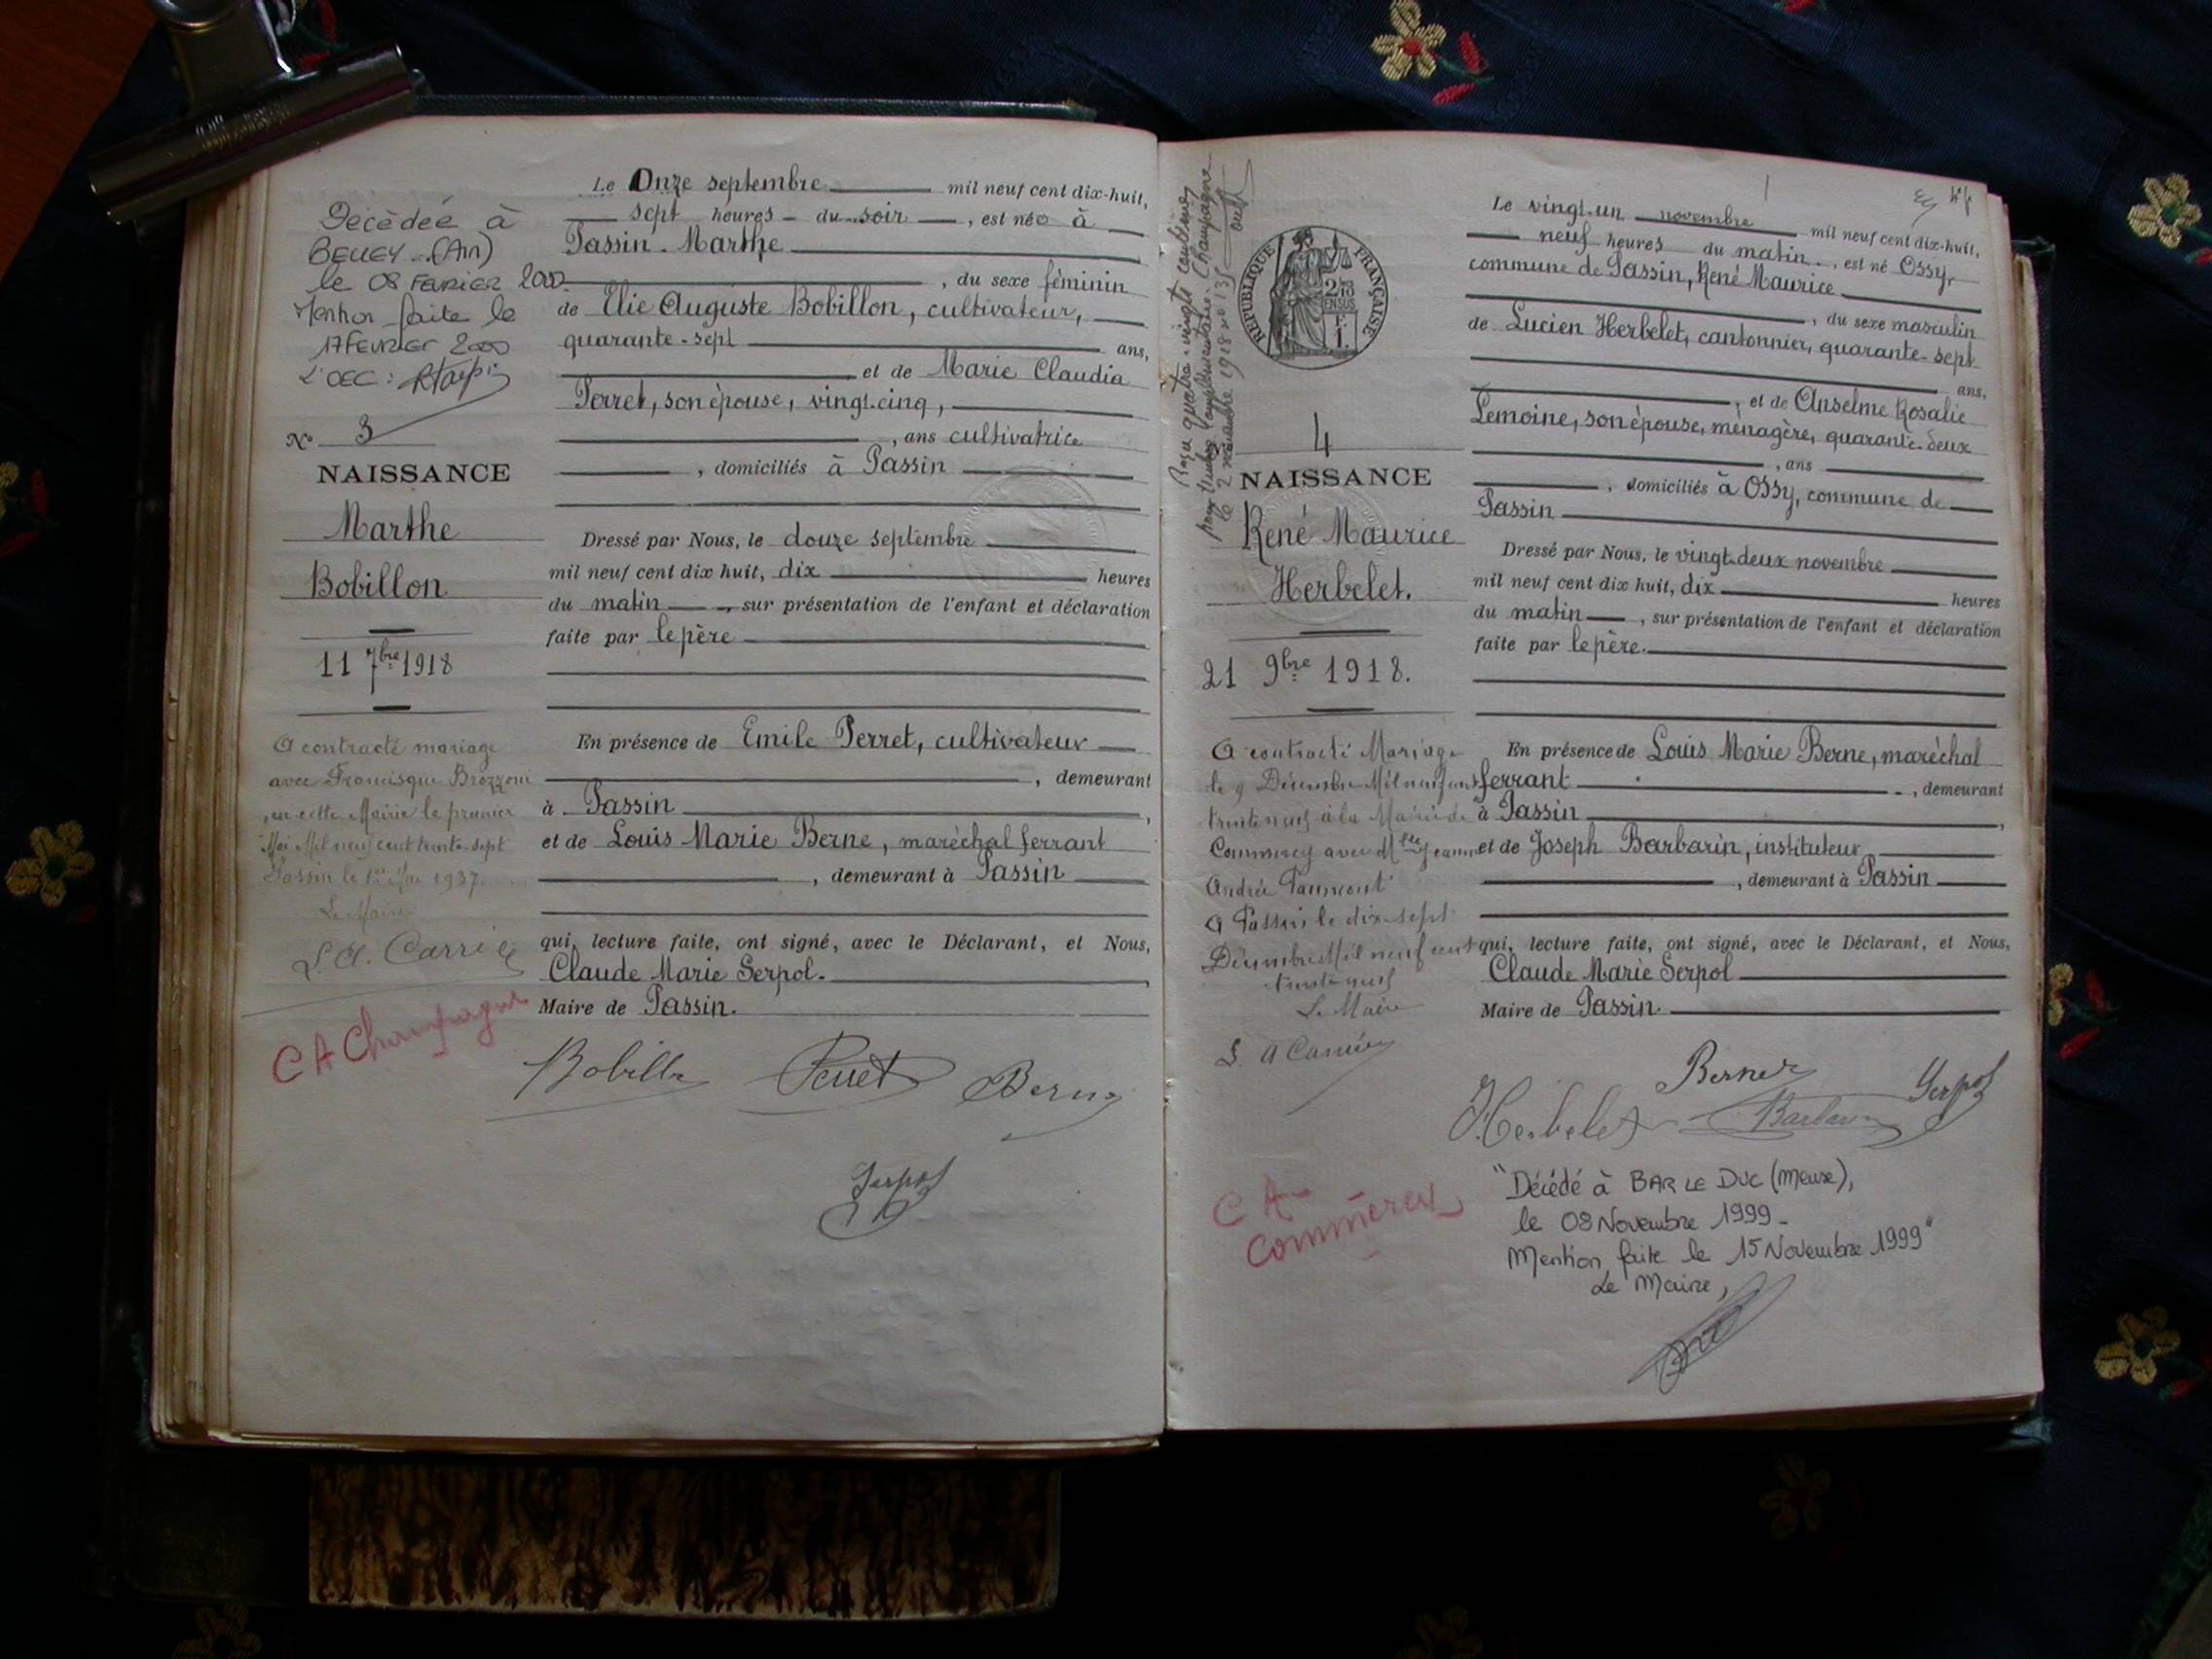 Décèdée à
BELLEY (Ain)
le 08 FEVRIER 2000
Mention faite le
17 FEVRIER 2000
L'OEC :
N° 3
NAISSANCE
Marthe
Bobillon
11 7bre 1918
A contracté mariage
avec Francisque Brozzoni
en cette Mairie le premier
Mai Mil neuf cent trente-sept
Passin le 1er Mai 1937
Le Maire
L. A. Carrié
C A Champagne
Le Onze septembre mil neuf cent dix-huit,
sept heures du soir, est née à
Passin. Marthe
, du sexe féminin
de Elie Auguste Bobillon, cultivateur,
quarante-sept ans,
et de Marie Claudia
Perret, son épouse, vingt-cinq,
, ans cultivatrice
, domiciliés à Passin
Dressé par Nous, le douze septembre
mil neuf cent dix huit, dix heures
du matin, sur présentation de l'enfant et déclaration
faite par le père
En présence de Emile Perret, cultivateur
, demeurant
à Passin,
et de Louis Marie Berne, maréchal ferrant
, demeurant à Passin
qui, lecture faite, ont signé, avec le Déclarant, et Nous,
Claude Marie Serpol.,
Maire de Passin.
Bobillon Perret Berne
Serpol
REPUBLIQUE FRANÇAISE
4
NAISSANCE
René Maurice
Herbelet.
21 9bre 1918.
A contracté Mariage
le 9 Décembre Mil neuf cent
trente neuf à la Mairie de
Commercy avec Mlle Jeanne
Andrée
A Passin, le dix-sept
Décembre Mil neuf cent
trente neuf
Le Maire
L. A Carrié
C A
Commercy
Le vingt-un novembre mil neuf cent dix-huit,
neuf heures du matin, est né Ossy,
commune de Passin, René Maurice
, du sexe masculin
de Lucien Herbelet, cantonnier, quarante-sept
ans,
, et de Anselme Rosalie
Lemoine, son épouse, ménagère, quarante-deux
, ans
, domiciliés à Ossy, commune de
Passin
Dressé par Nous, le vingt-deux novembre
mil neuf cent dix huit, dix heures
du matin, sur présentation de l'enfant et déclaration
faite par le père.
En présence de Louis Marie Berne, maréchal
ferrant, demeurant
à Passin,
et de Joseph Barbarin, instituteur
, demeurant à Passin
qui, lecture faite, ont signé, avec le Déclarant, et Nous,
Claude Marie Serpol
Maire de Passin.
Berne Serpol
Herbelet Barbarin
"Décédé à BAR LE DUC (Meuse),
le 08 Novembre 1999-
Mention faite le 15 Novembre 1999"
Le Maire,